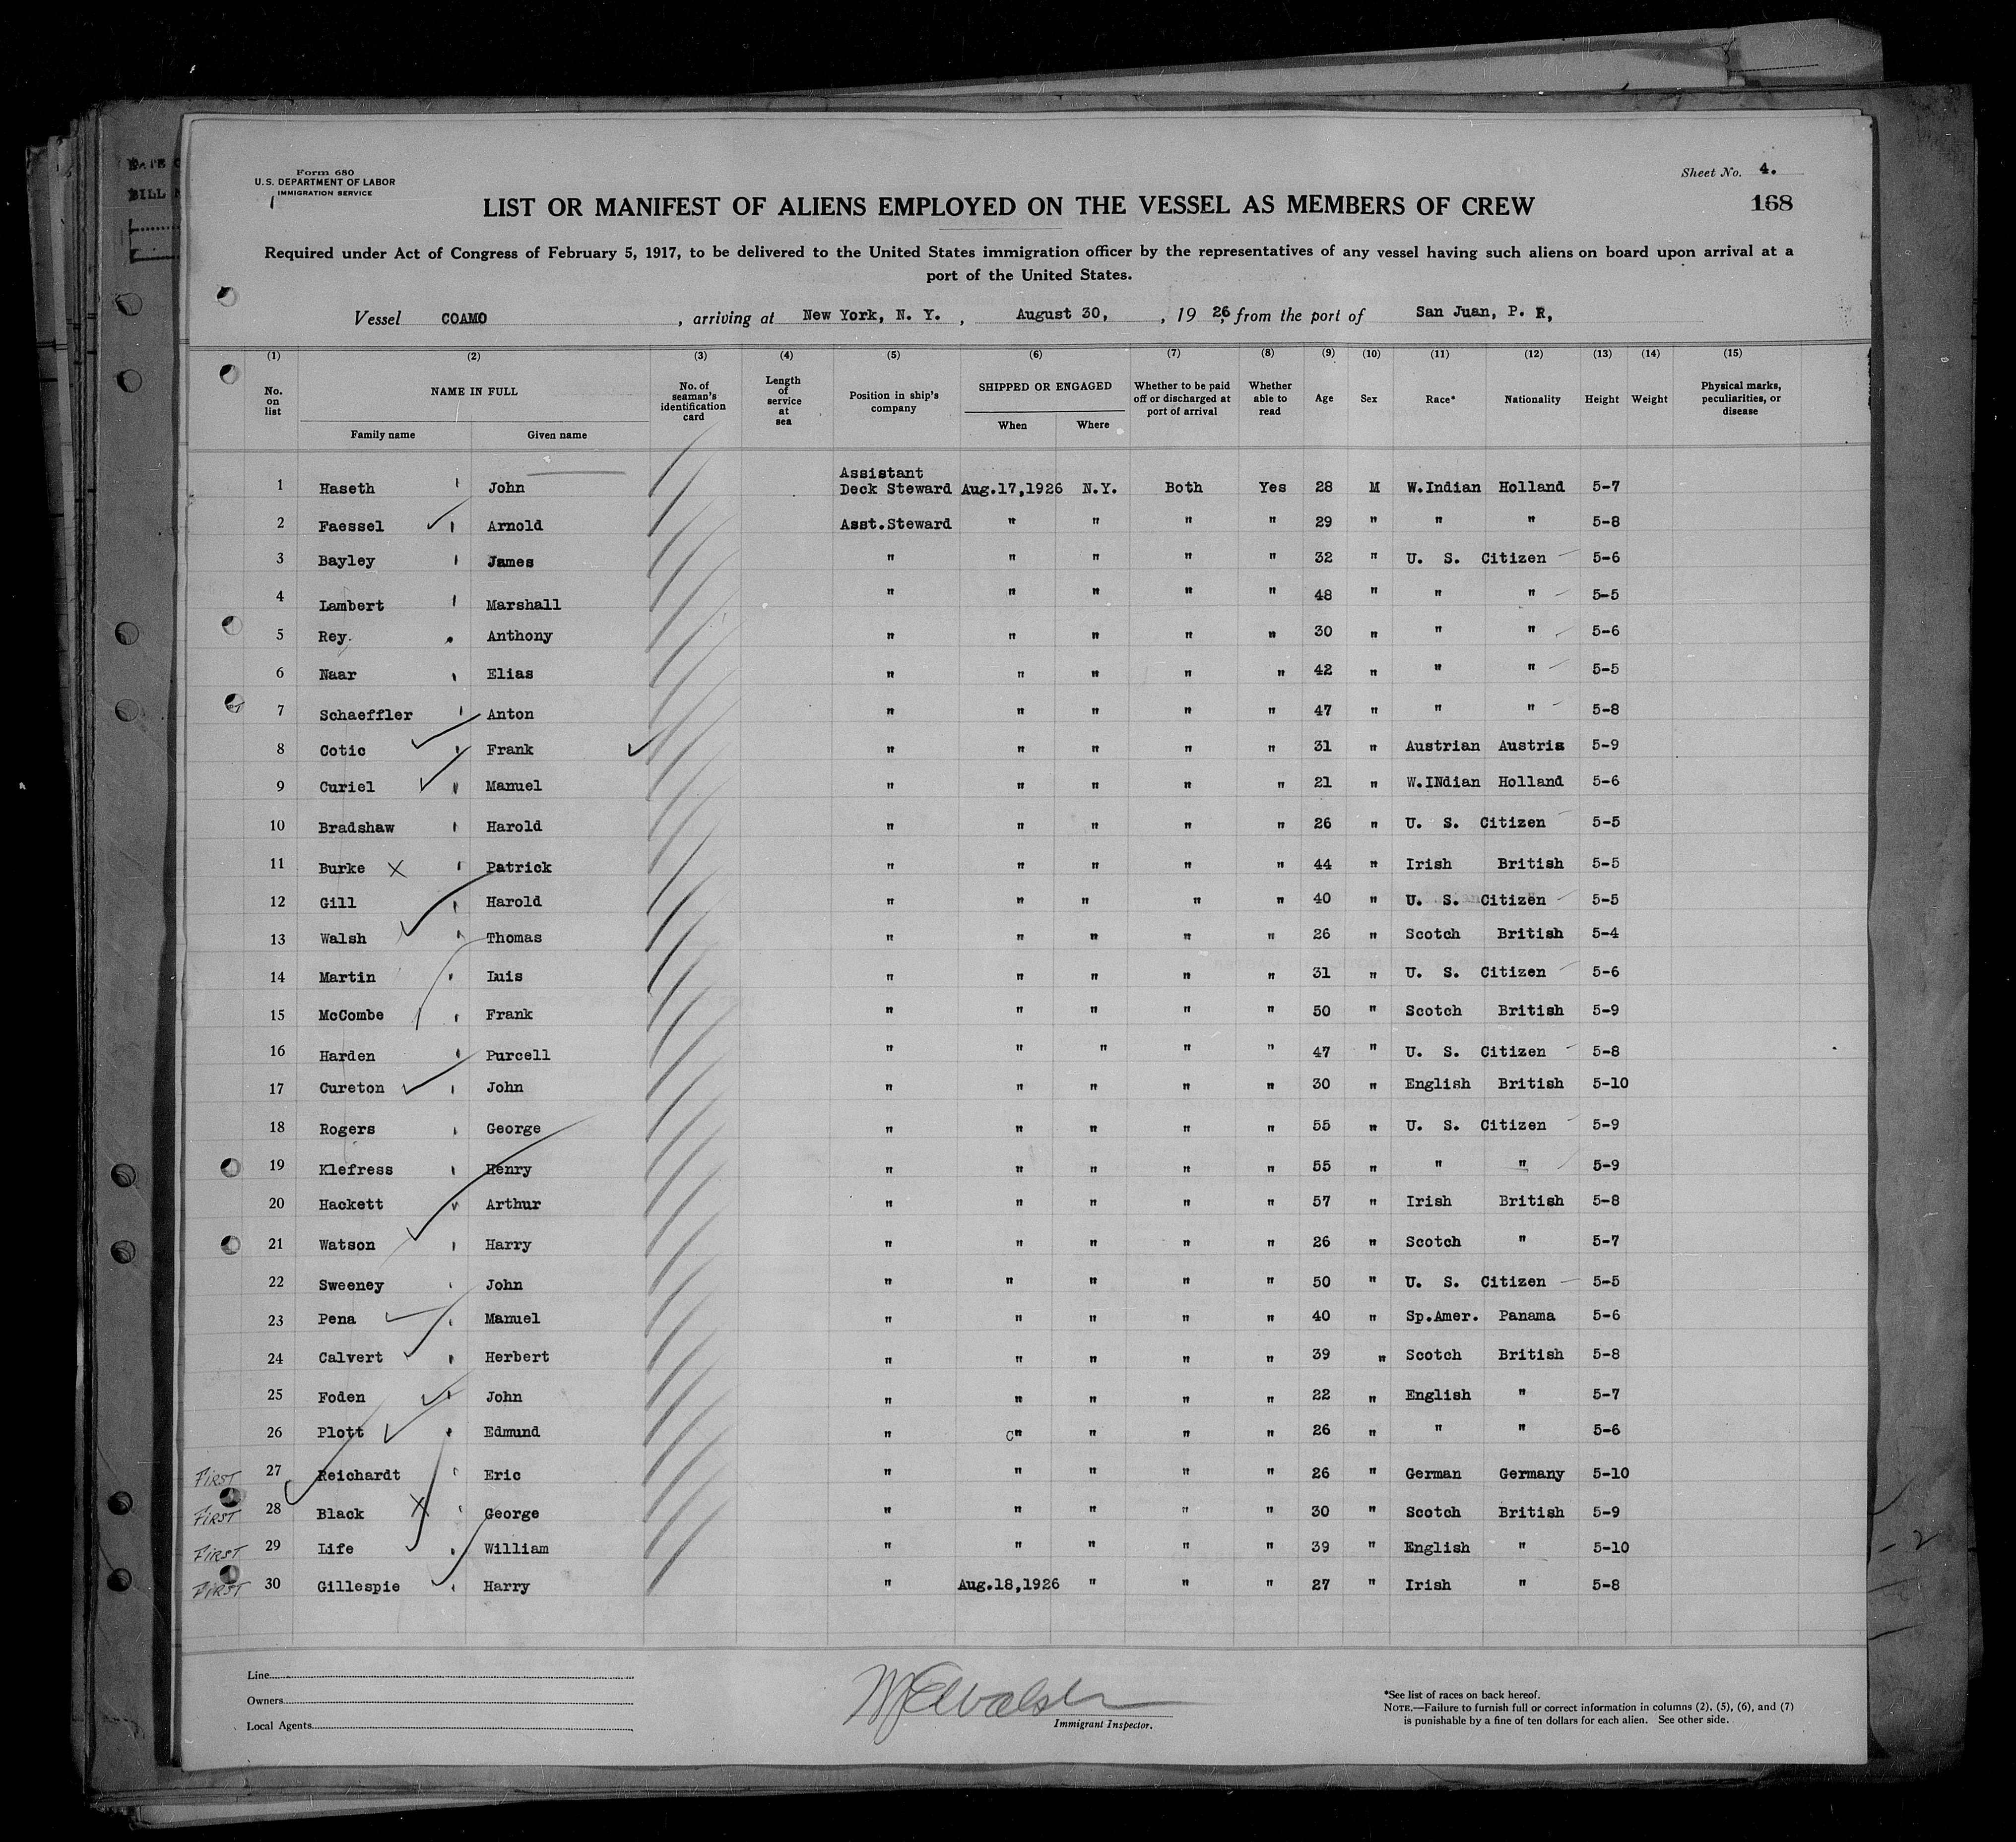 DATE
BILL
Form 680
U.S. DEPARTMENT OF LABOR
IMMIGRATION SERVICE
Sheet No. 4.
168
LIST OR MANIFEST OF ALIENS EMPLOYED ON THE VESSEL AS MEMBERS OF CREW
Required under Act of Congress of February 5, 1917, to be delivered to the United States immigration officer by the representatives of any vessel having such aliens on board upon arrival at a
port of the United States.
Vessel COAMO, arriving at New York, N. Y., August 30, , 19 26, from the port of San Juan, P. R,
(1) (2) (3) (4) (5) (6) (7) (8) (9) (10) (11) (12) (13) (14) (15)
No. on list NAME IN FULL Family name Given name No. of seaman's identification card Length of service at sea Position in ship's company SHIPPED OR ENGAGED When Where Whether to be paid off or discharged at port of arrival Whether able to read Age Sex Race* Nationality Height Weight Physical marks, peculiarities, or disease
1 Haseth John Assistant Deck Steward Aug.17,1926 N.Y. Both Yes 28 M W.Indian Holland 5-7
2 Faessel Arnold Asst.Steward " " " " 29 " " " 5-8
3 Bayley James " " " " " 32 " U. S. Citizen 5-6
4 Lambert Marshall " " " " " 48 " " " 5-5
5 Rey. Anthony " " " " " 30 " " " 5-6
6 Naar Elias " " " " " 42 " " " 5-5
7 Schaeffler Anton " " " " " 47 " " " 5-8
8 Cotic Frank " " " " " 31 " Austrian Austria 5-9
9 Curiel Manuel " " " " " 21 " W.INdian Holland 5-6
10 Bradshaw Harold " " " " " 26 " U. S. Citizen 5-5
11 Burke X Patrick " " " " " 44 " Irish British 5-5
12 Gill Harold " " " " " 40 " U. S. Citizen 5-5
13 Walsh Thomas " " " " " 26 " Scotch British 5-4
14 Martin Luis " " " " " 31 " U. S. Citizen 5-6
15 McCombe Frank " " " " " 50 " Scotch British 5-9
16 Harden Purcell " " " " " 47 " U. S. Citizen 5-8
17 Cureton John " " " " " 30 " English British 5-10
18 Rogers George " " " " " 55 " U. S. Citizen 5-9
19 Klefress Henry " " " " " 55 " " " 5-9
20 Hackett Arthur " " " " " 57 " Irish British 5-8
21 Watson Harry " " " " " 26 " Scotch " 5-7
22 Sweeney John " " " " " 50 " U. S. Citizen 5-5
23 Pena Manuel " " " " " 40 " Sp.Amer. Panama 5-6
24 Calvert Herbert " " " " " 39 " Scotch British 5-8
25 Foden John " " " " " 22 " English " 5-7
26 Plott Edmund " C" " " " 26 " " " 5-6
FIRST 27 Reichardt Eric " " " " " 26 " German Germany 5-10
FIRST 28 Black X George " " " " " 30 " Scotch British 5-9
FIRST 29 Life William " " " " " 39 " English " 5-10
FIRST 30 Gillespie Harry " Aug.18,1926 " " " 27 " Irish " 5-8
Line
Owners
Local Agents
Immigrant Inspector.
*See list of races on back hereof.
NOTE.—Failure to furnish full or correct information in columns (2), (5), (6), and (7)
is punishable by a fine of ten dollars for each alien. See other side.
-2